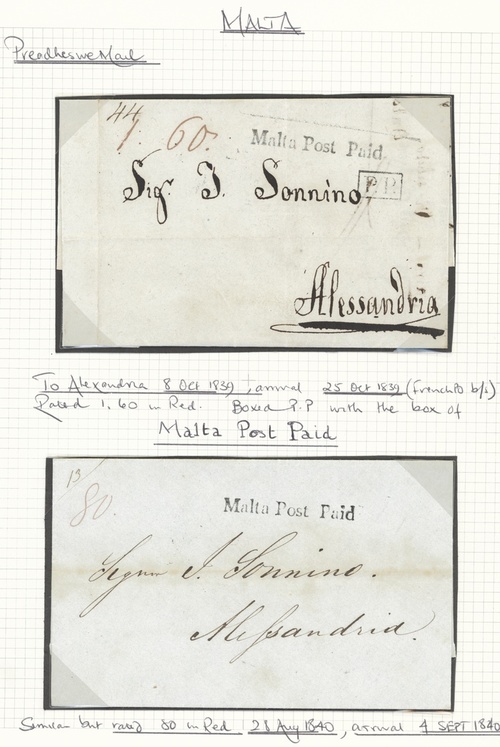 MALTA
Preadhesive Mail
44
1. 60.
Malta Post Paid
Sigr. I. Sonnino,
P.P.
Alessandria
To Alexandria 8 Oct 1839, arrival 25 Oct 1839 (French P.O b/s)
Rated 1,60 in Red. Boxed P.P with the box of
Malta Post Paid
13
80.
Malta Post Paid
Signor I. Sonnino.
Alessandria.
Similar but rated 80 in Red 28 Aug 1840, arrival 4 SEPT 1840